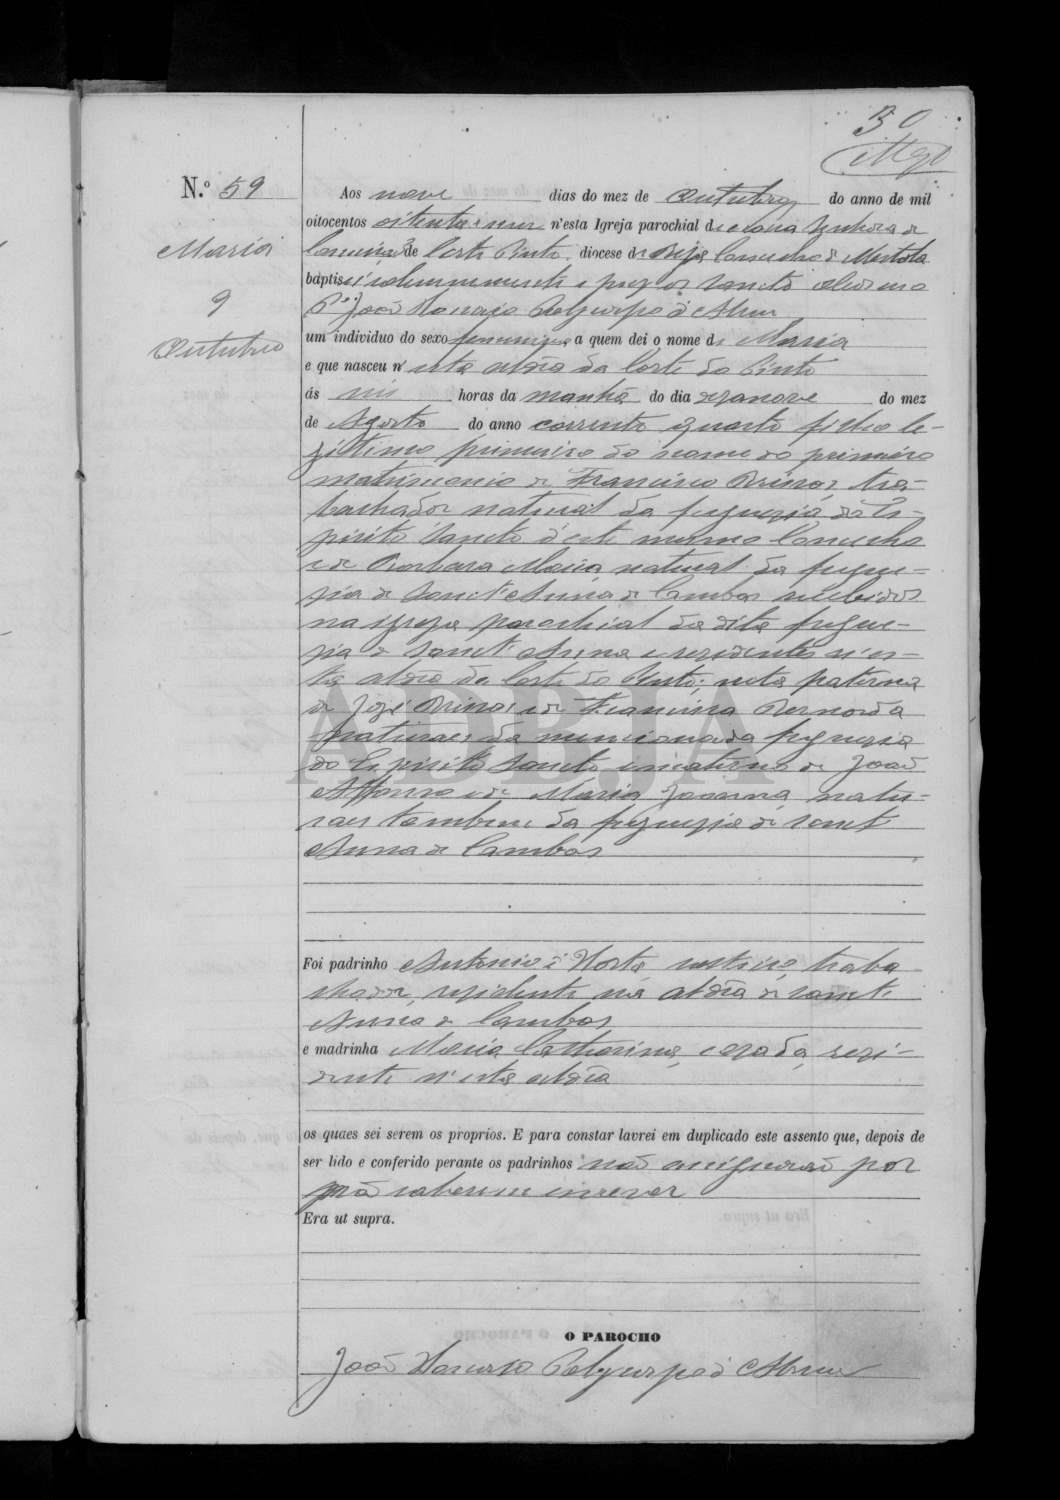 30
N.º 59
Maria
9
Outubro
Aos nove dias do mez de Outubro do anno de mil
oitocentos oitenta e n'esta Igreja parochial de Nossa Senhora da
Conceição de Corte Pinto, diocese de Beja Concelho de Mertola
baptisei solemnemente e puz os sanctos oleos eu o
P.e João Polycarpo d'Abreu
um individuo do sexo femenino, a quem dei o nome de Maria
e que nasceu n'esta aldêa da Corte do Pinto
ás seis horas da manhã do dia desanove do mez
de Agosto do anno corrente quarto filho le-
gitimo, primeiro do nome do primeiro
matrimonio de Francisco Brissos, tra-
balhador natural da freguesia do Es-
pirito Sancto d'este mesmo Concelho
e de Barbara Maria, natural da fregue-
sia de Sanct'Anna de Cambas recebidos
na igreja parochial da dita fregue-
sia de Sanct'Anna e residentes n'es-
ta aldêa da Corte do Pinto; neta paterna
de José Brissos e de Francisca Bernarda
naturaes da mencionada freguesia
do Espirito Sancto e materna de João
Affonso e de Maria Joanna natu-
raes tambem da freguesia de Sanct'
Anna de Cambas
ADBJA
Foi padrinho Antonio d'Horta, traba-
lhador, residente na aldêa de Sanct'
Anna de Cambas
e madrinha Maria Catharina, casada, resi-
dente n'esta aldêa
os quaes sei serem os proprios. E para constar lavrei em duplicado este assento que, depois de
ser lido e conferido perante os padrinhos não assignarão por
não saberem escrever
Era ut supra.
O PAROCHO
João Polycarpo d'Abreu